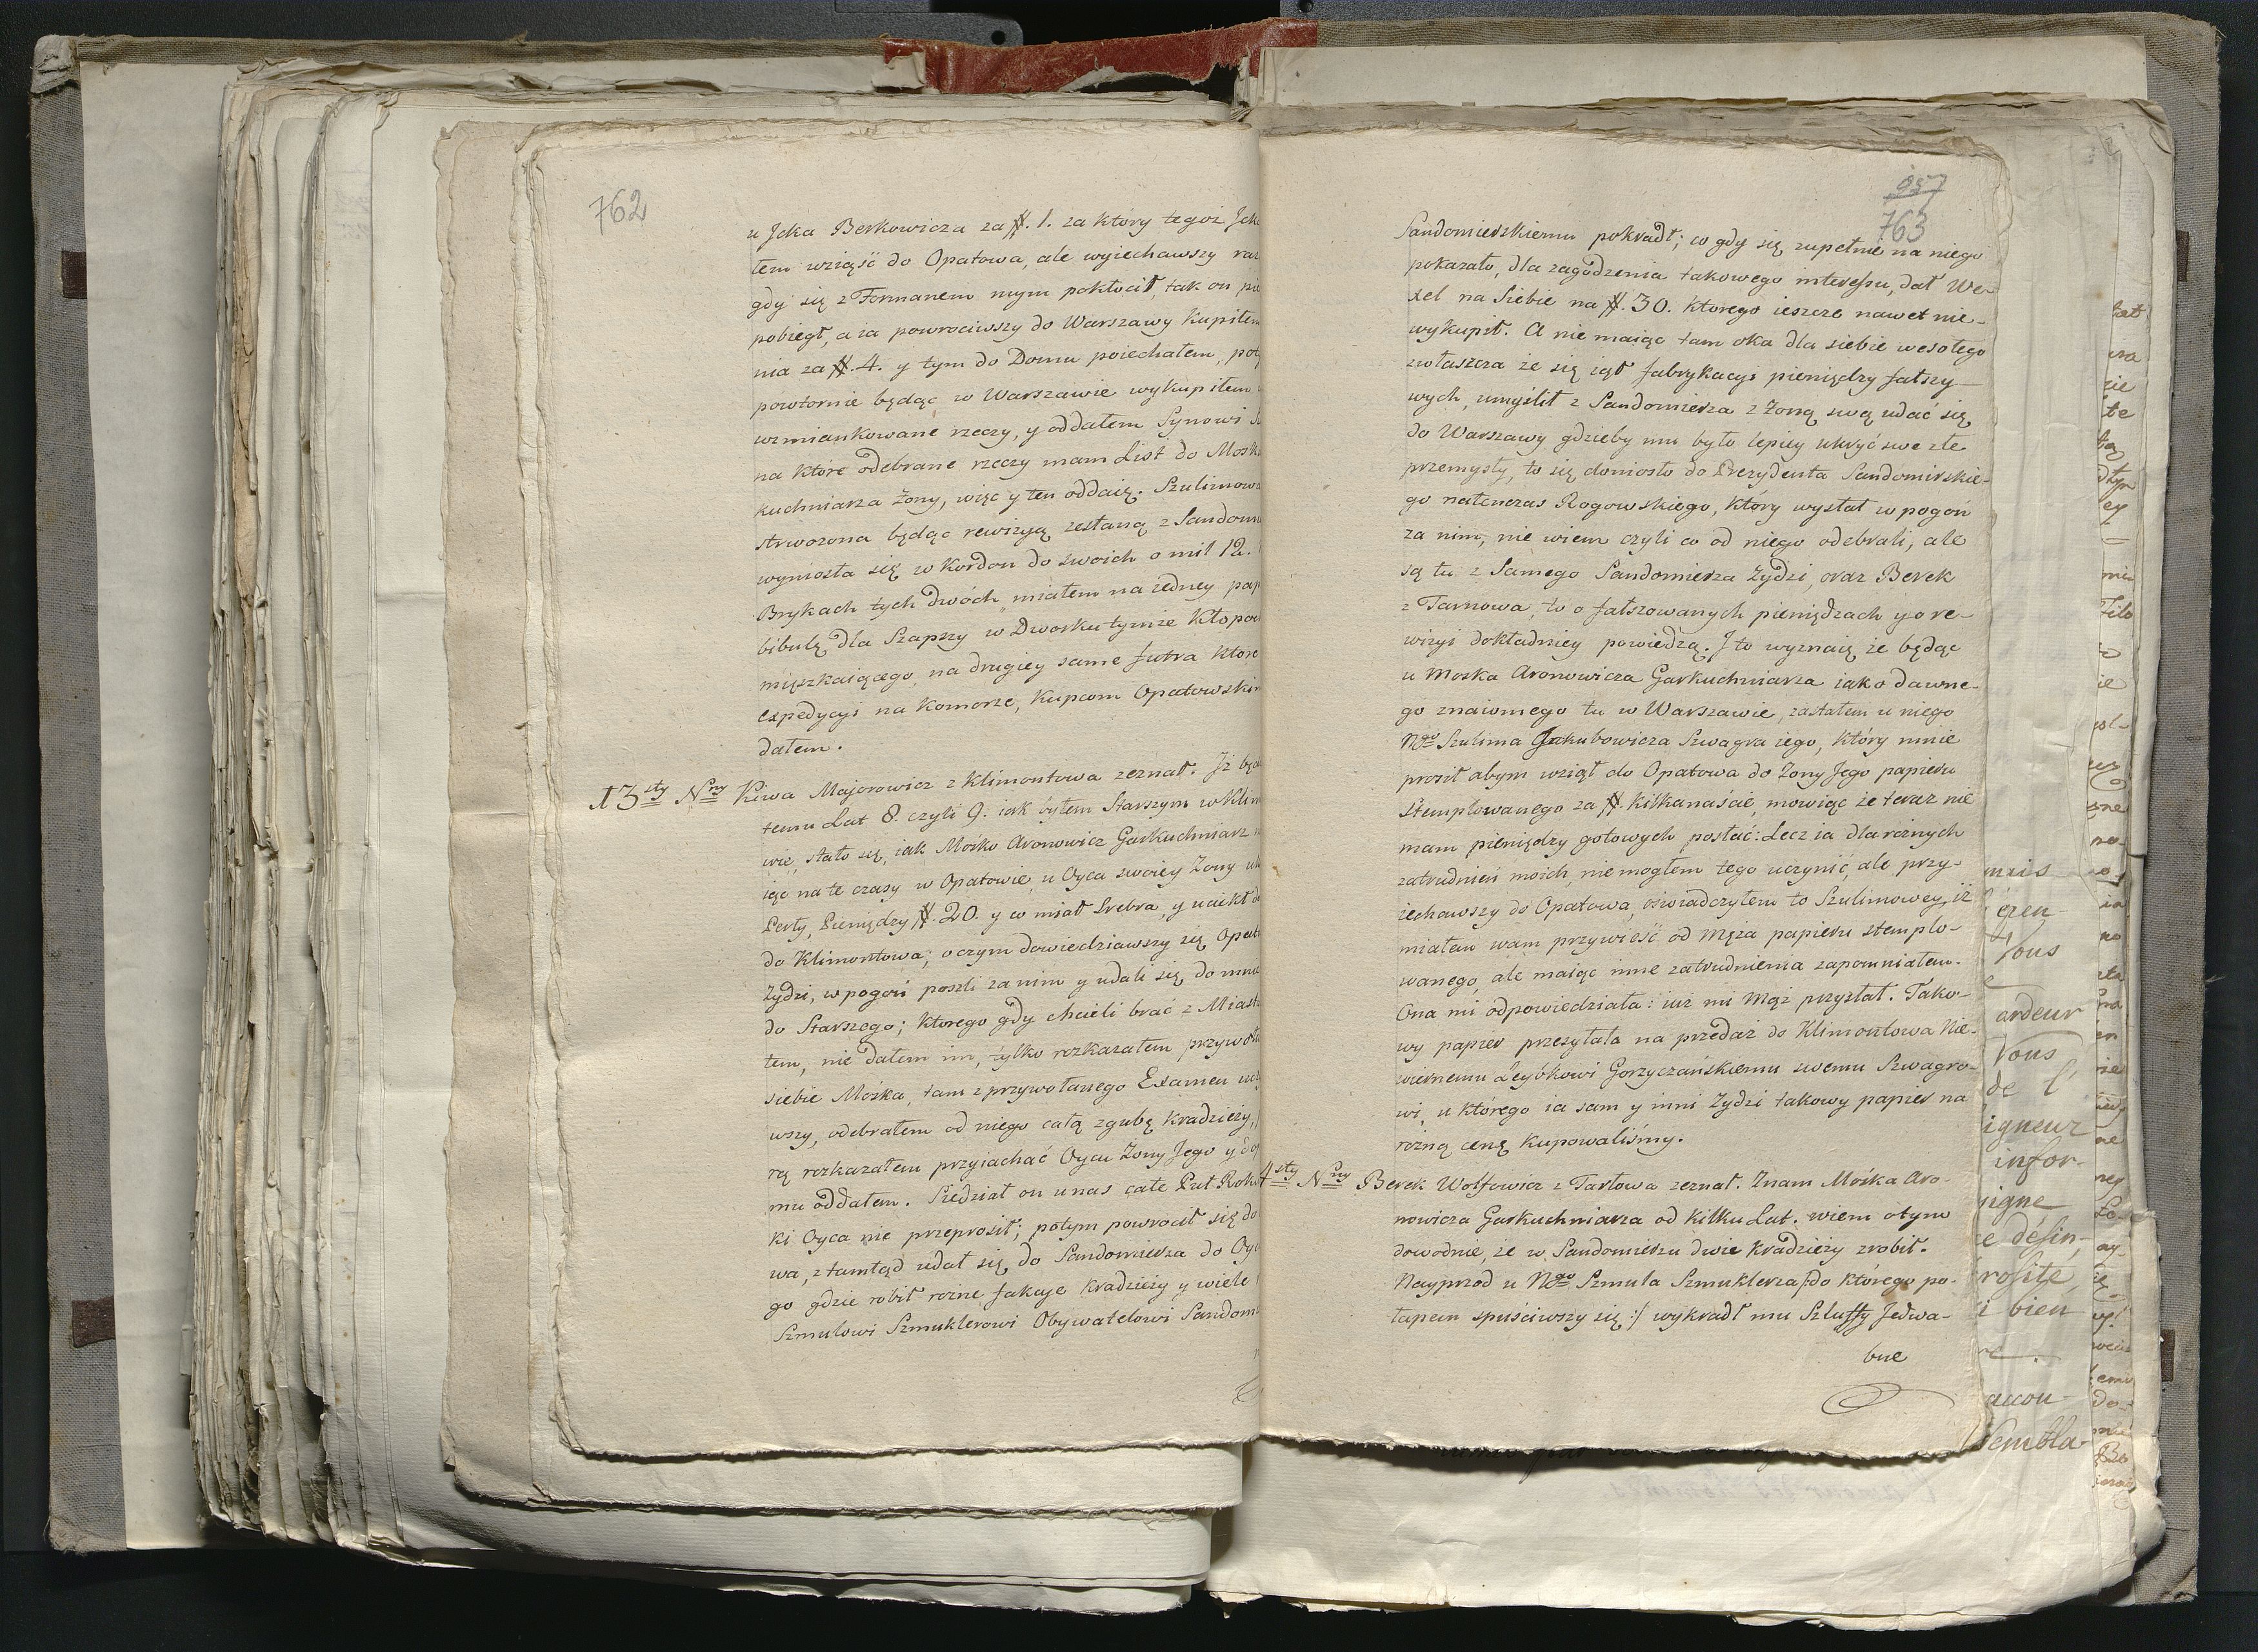 762
u Jcka Berkowicza za #. 1. za który tegoż Jck
tem wziąść do Opatowa, ale wyiechawszy raz
gdy się z Formanem mym pokłocił, tak on pie
pobiegł, a ia powrociwszy do Warszawy kupiłem
nia za #. 4. y tym do Domu poiechałem, poty
powtornie będąc w Warszawie wykupiłem
wzmiankowane rzeczy, y oddałem Synowi
na które odebrane rzeczy mam List do Mosk
kuchniarza Zony, więc y ten oddaię. Szulimow
strwozona będąc rewizyą zesłaną z Sandom
wyniosła się w Kordon do swoich o mil 12.
Brykach tych dwóch miałem na iedney pap
bibułę dla Szapszy w Dworku tymże Kłopo
mięszkaiącego, na drugiey same futra ktore
expedycyi na Komorze, Kupcom Opatowskim
dałem.
13sty Nny Kiwa Majorowicz z Klimontowa zeznał. Iż będ
temu Lat 8. czyli 9. iak byłem Starszym w Klim
wie, stało się, iak Mośko Aronowicz Garkuchniarz
iąc na te czasy w Opatowie, u Oyca swoiey Zony uk
Perły, Pieniędzy #. 20. y co miał Srebra, y uciekł d
do Klimontowa; o czym dowiedziawszy się Opat
Zydzi, w pogoń poszli za nim y udali się do mnie
do Starszego; ktorego gdy chcieli brać z Miast
tem, nie dałem im, tylko rozkazałem przywoła
siebie Mośka, tam z przywołanego Examen
wszy, odebrałem od niego całą zgubę kradzieży,
rą rozkazałem przyiachać Oycu Zony Jego y
mu oddałem. Siedział on u nas całe Puł Roku
ki Oyca nie przeprosił; potym powrocił się do
wa, z tamtąd udał się do Sandomierza do Oy
go gdzie robił rożne fakcye kradzieży y wiele
Szmulowi Szmuklerowi Obywatelowi Sandom
957
763
Sandomierskiemu pokradł; co gdy się zupełnie na niego
pokazało, dla zagodzenia takowego interessu, dał We-
xel na Siebie na #. 30. ktorego ieszcze nawet nie-
wykupił. A nie maiąc tam oka dla siebie wesołego
zwłaszcza że się iął fabrykacyi pieniędzy fałszy-
wych, umyślił z Sandomierza z Zoną swą udać się
do Warszawy gdzieby mu było lepiey ukryć swe złe
przemysły, to się doniosło do Prezydenta Sandomirskie-
go natenczas Rogowskiego, który wysłał w pogoń
za nim, nie wiem czyli co od niego odebrali, ale
są tu z Samego Sandomierza Zydzi, oraz Berek
z Tarnowa, to o fałszowanych pieniądzach y o re-
wizyi dokładniey powiedzą. J to wyznaię że będąc
u Moska Aronowicza Garkuchniarza iako dawne-
go znaiomego tu w Warszawie, zastałem u niego
Ngo Szulima Jakubowicza Szwagra iego, który mnie
prosił abym wziął do Opatowa do Zony Jego papieru
stemplowanego za # kilkanaście, mowiąc że teraz nie
mam pieniędzy gotowych posłać: Lecz ia dla rożnych
zatrudnień moich, nie mogłem tego uczynić, ale przy-
iechawszy do Opatowa, oświadczyłem to Szulimowey, iż
miałem wam przywieść od Męża papieru stemplo-
wanego, ale maiąc inne zatrudnienia zapomniałem.
Ona mi odpowiedziała: iuż mi Mąż przysłał. Tako-
wy papier przesyłała na przedaż do Klimontowa Nie-
wiernemu Leybkowi Gorzyczańskiemu swemu Szwagro-
wi, u którego ia sam y inni Zydzi takowy papier na
rożną cenę kupowaliśmy.
4sty Nny Berek Wolfowicz z Tarłowa zeznał. Znam Mośka Aro-
nowicza Garkuchniarza od kilku Lat. wiem o tym
dowodnie, że w Sandomierzu dwie kradzieży zrobił.
Nayprzod u Ngo Szmula Szmuklerza /:do którego po-
tapem spuściwszy się:/ wykradł mu Szluffy Jedwa-
bne
ardeur
Vous
de l'
igneur
infor-
igne
e désin-
rosité
i bien
accou-
Sembla-